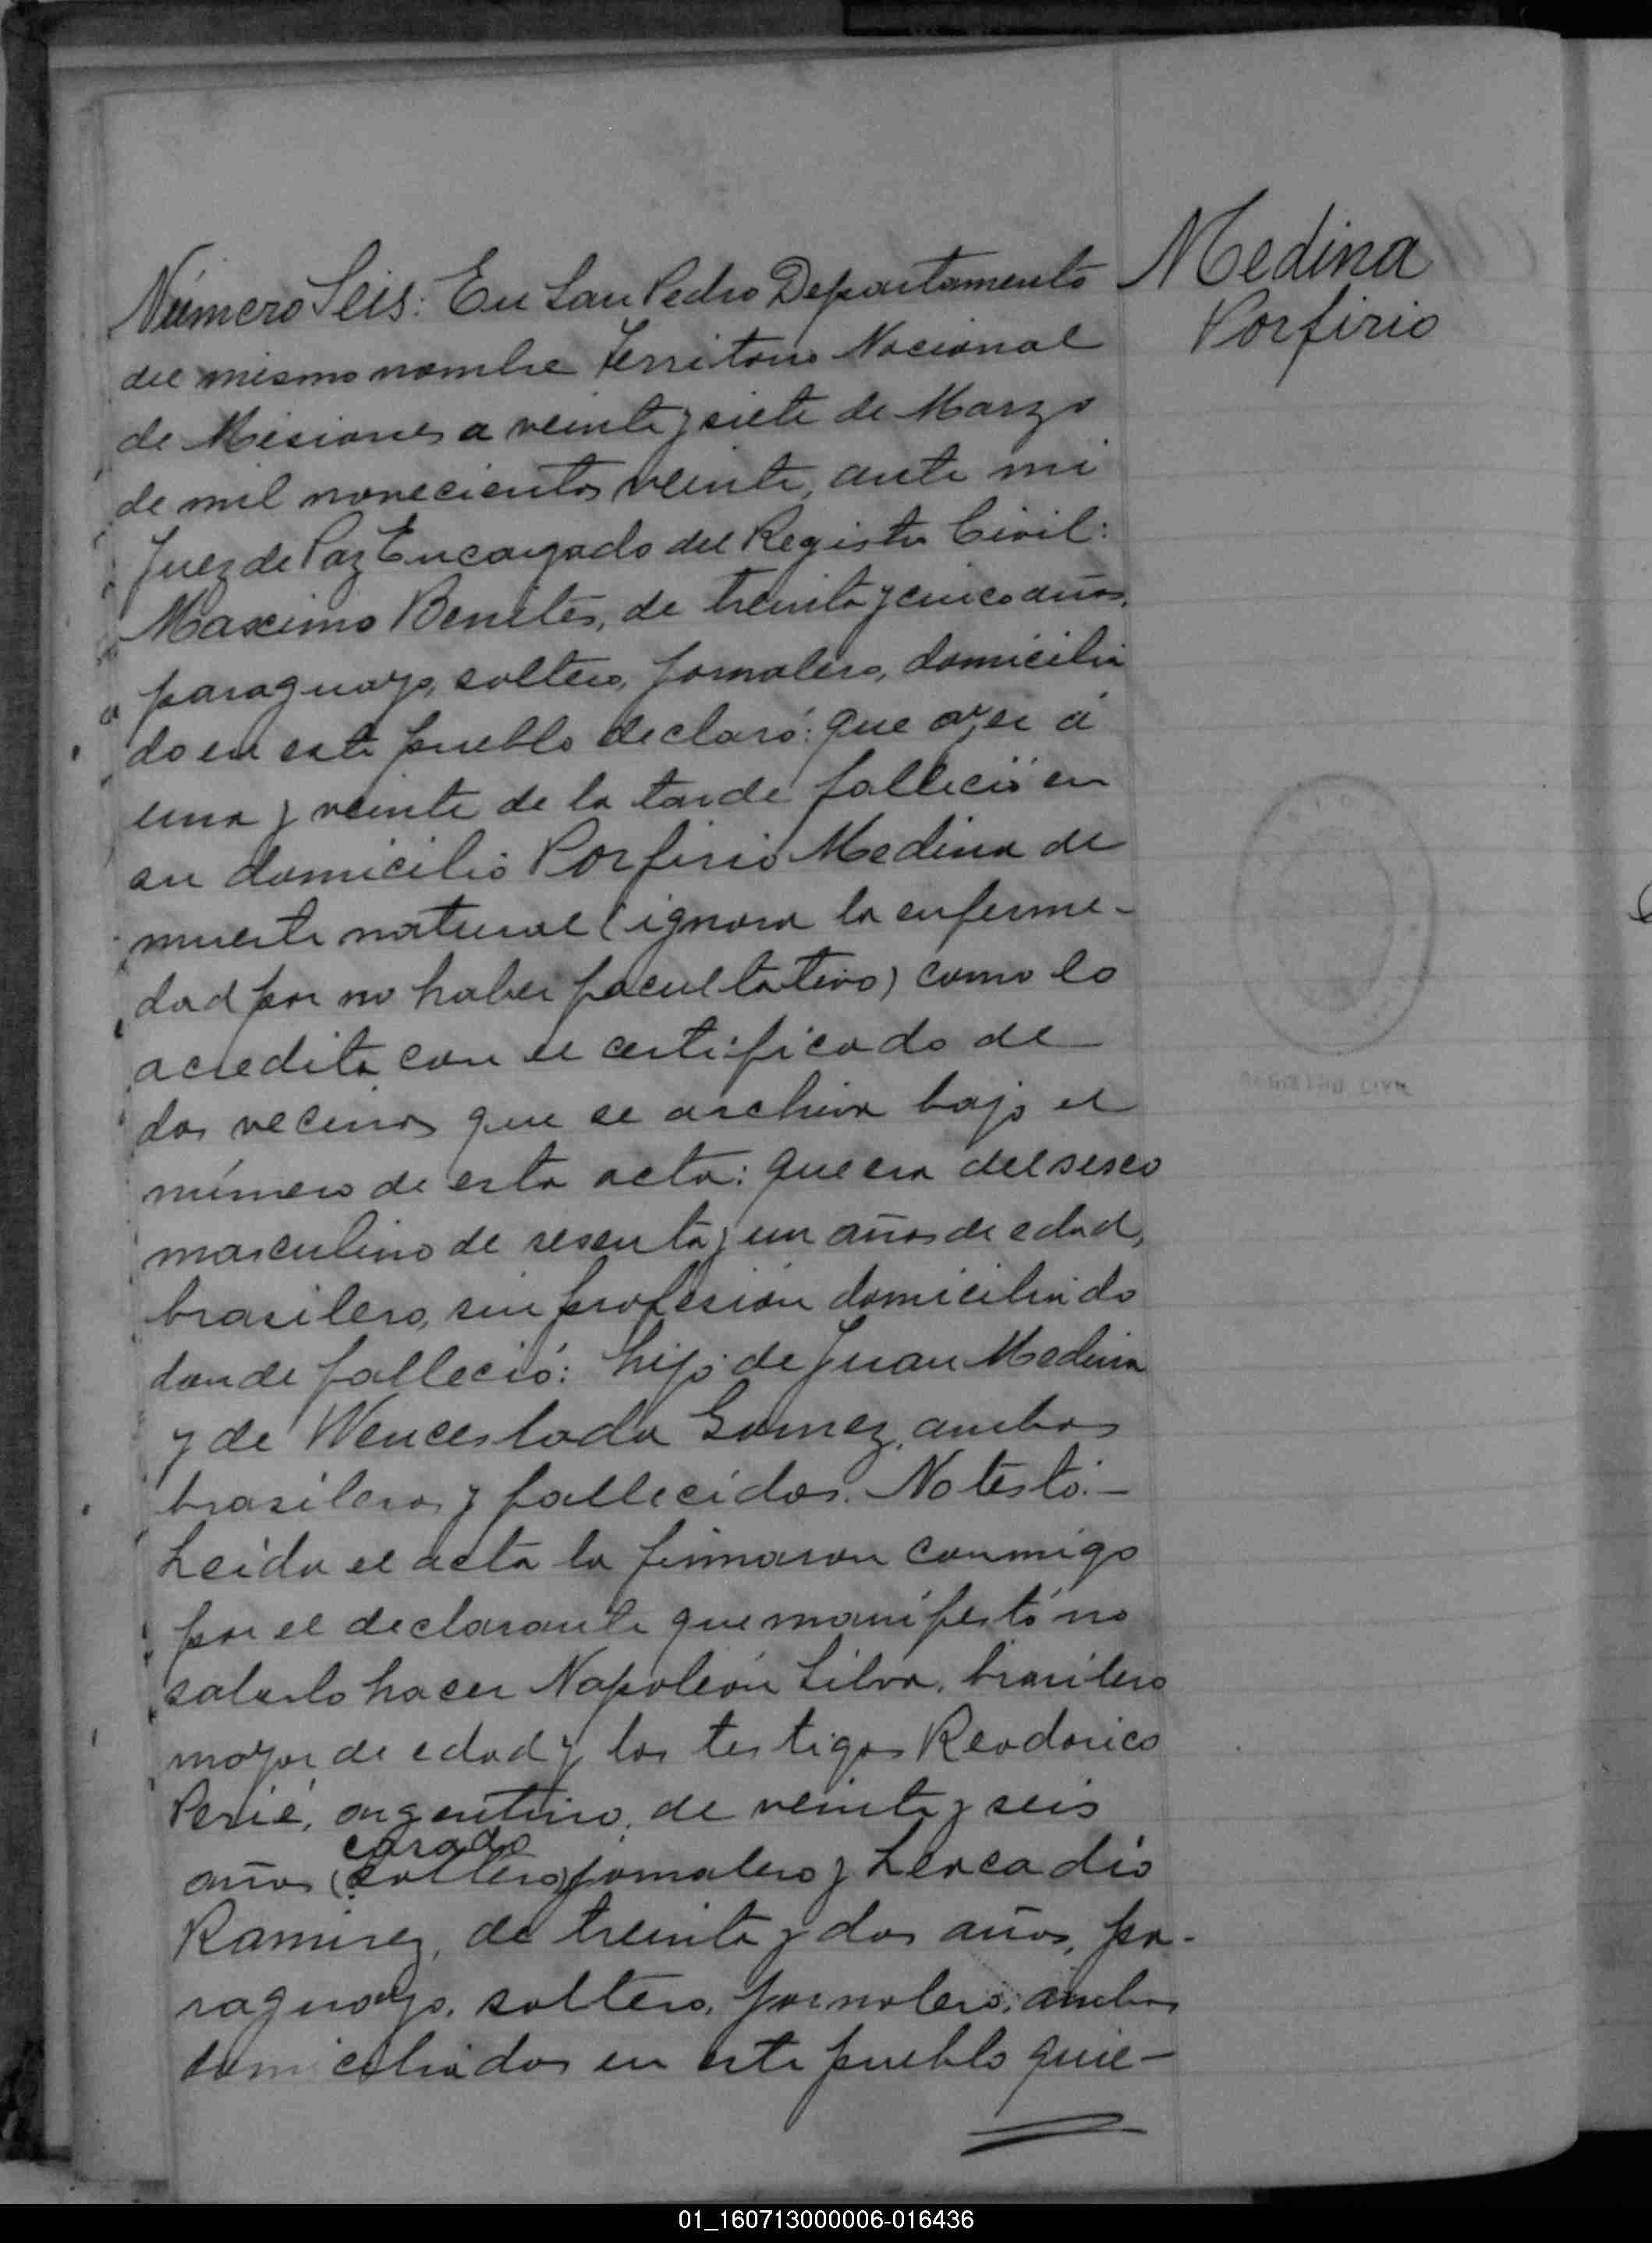 Medina
Porfirio
Número Seis: En San Pedro Departamento
del mismo nombre Territorio Nacional
de Misiones a veinte y siete de Marzo
de mil novecientos veinte, ante mi
Juez de Paz Encargado del Registro Civil:
Maximo Benites, de treinta y cinco años,
paraguayo, soltero, jornalero, domicilia
do en este pueblo declaró: que ayer á
una y veinte de la tarde falleció en
su domicilio Porfirio Medina de
muerte natural (ignora la enferme-
dad por no haber facultativo) como lo
acredita con el certificado de
dos vecinos que se archiva bajo el
número de esta acta: que era del sexo
masculino de sesenta y un años de edad,
brasilero, sin profesión domiciliado
donde falleció: hijo de Juan Medina
y de Wenceslada Gomez, ambos
brasileros y fallecidos. No testó.-
Leida el acta la firmaron conmigo
por el declarante que manifestó no
saberlo hacer Napoleón Silva, brasilero
mayor de edad y los testigos Reodorico
Perié, argentino, de veinte y seis
casado
años (soltero) jornalero y Leocadio
Ramirez, de treinta y dos años, pa-
raguayo, soltero, jornalero, ambos
domiciliados en este pueblo quie-
REGISTRO CIVIL
01_160713000006-016436